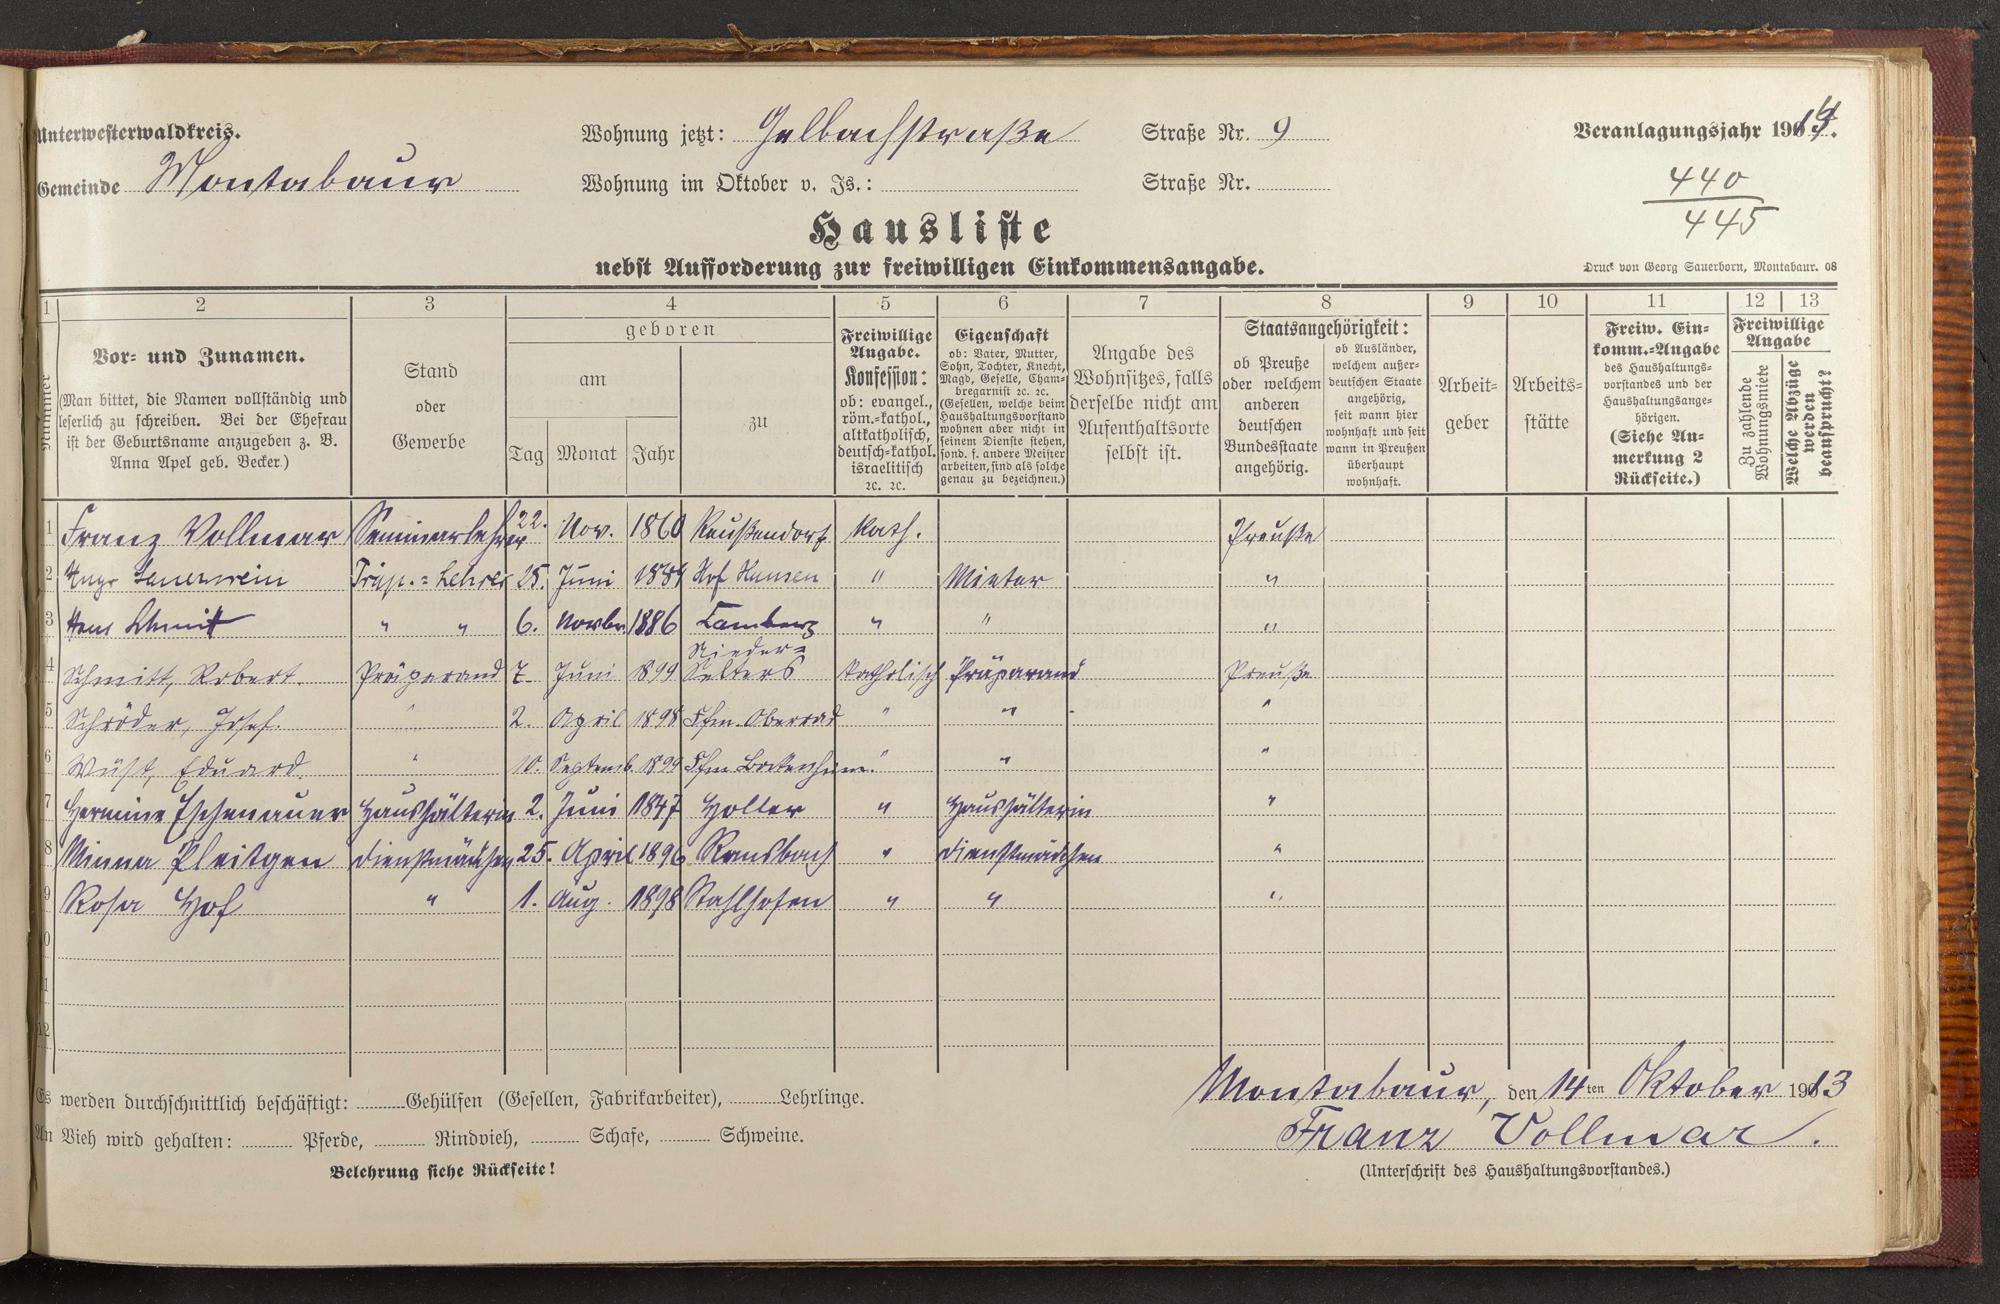 Unterwesterwaldkreis.
Wohnung jetzt: Gelbachstraße Straße Nr. 9
Veranlagungsjahr 1914.
Gemeinde Montabaur
Wohnung im Oktober v. Js.: Straße Nr.
440
445
Hausliste
nebst Aufforderung zur freiwilligen Einkommensangabe.
Druck von Georg Sauerborn, Montabaur. 08
1 2 3 4 5 6 7 8 9 10 11 12 13
Nummer
Vor- und Zunamen.
(Man bittet, die Namen vollständig und
leserlich zu schreiben. Bei der Ehefrau
ist der Geburtsname anzugeben z. B.
Anna Apel geb. Becker.)
Stand
oder
Gewerbe
geboren
am
Tag Monat Jahr
zu
Freiwillige
Angabe.
Konfession:
ob: evangel.,
röm.-kathol.,
altkatholisch,
deutsch-kathol.
israelitisch
ꝛc. ꝛc.
Eigenschaft
ob: Vater, Mutter,
Sohn, Tochter, Knecht,
Magd, Geselle, Cham-
bregarnist ꝛc. ꝛc.
(Gesellen, welche beim
Haushaltungsvorstand
wohnen aber nicht in
seinem Dienste stehen,
sond. f. andere Meister
arbeiten, sind als solche
genau zu bezeichnen.)
Angabe des
Wohnsitzes, falls
derselbe nicht am
Aufenthaltsorte
selbst ist.
Staatsangehörigkeit:
ob Preuße
oder welchem
anderen
deutschen
Bundesstaate
angehörig.
ob Ausländer,
welchem außer-
deutschen Staate
angehörig,
seit wann hier
wohnhaft und seit
wann in Preußen
überhaupt
wohnhaft.
Arbeit-
geber
Arbeits-
stätte
Freiw. Ein-
komm.-Angabe
des Haushaltungs-
vorstandes und der
Haushaltungsange-
hörigen.
(Siehe An-
merkung 2
Rückseite.)
Freiwillige
Angabe
Zu zahlende
Wohnungsmiete
Welche Abzüge
werden
beansprucht?
1 Franz Vollmar Seminarlehrer 22. Nov. 1860 Reußendorf Kath. Preuße
2 Sauerwein Präp.=Lehrer 25. Juni 1884 " Mieter "
3 Hans Schmitt " " 6. Novbr 1886 Camberg " " "
4 Schmitt, Robert. Präparand 7. Juni 1899 Nieder=Selters katholisch Präparand Preuße
5 Schröder, Josef. " 2. April 1898 Ffm. Oberrad " " "
6 Wüst, Eduard. " 10. Septemb. 1899 Ffm Bockenheim. " " "
7 Hermine Eschenauer Haushälterin 2. Juni 1847 Holler " Haushälterin "
8 Minna Pleitgen Dienstmädchen 25. April 1896 Ransbach " Dienstmädchen "
9 Rosa Hof " 1. Aug. 1898 Stahlhofen " " "
10
11
12
Montabaur, den 14ten Oktober 1913
Es werden durchschnittlich beschäftigt: Gehülfen (Gesellen, Fabrikarbeiter), Lehrlinge.
Franz Vollmar.
An Vieh wird gehalten: Pferde, Rindvieh, Schafe, Schweine.
(Unterschrift des Haushaltungsvorstandes.)
Belehrung siehe Rückseite!